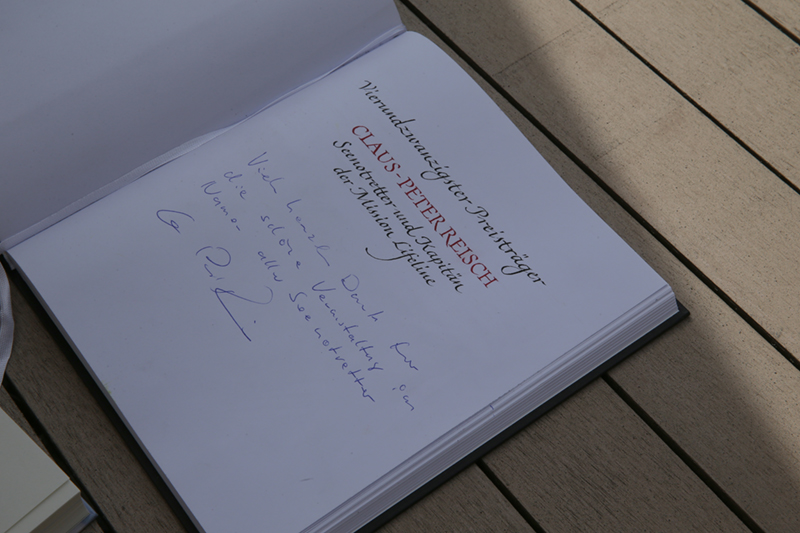 Vierundzwanzigster Preisträger
CLAUS-PETER REISCH
Seenotretter und Kapitän
der Mission Lifeline
Dank für
die schöne Veranstaltung im
Namen aller Seenotretter